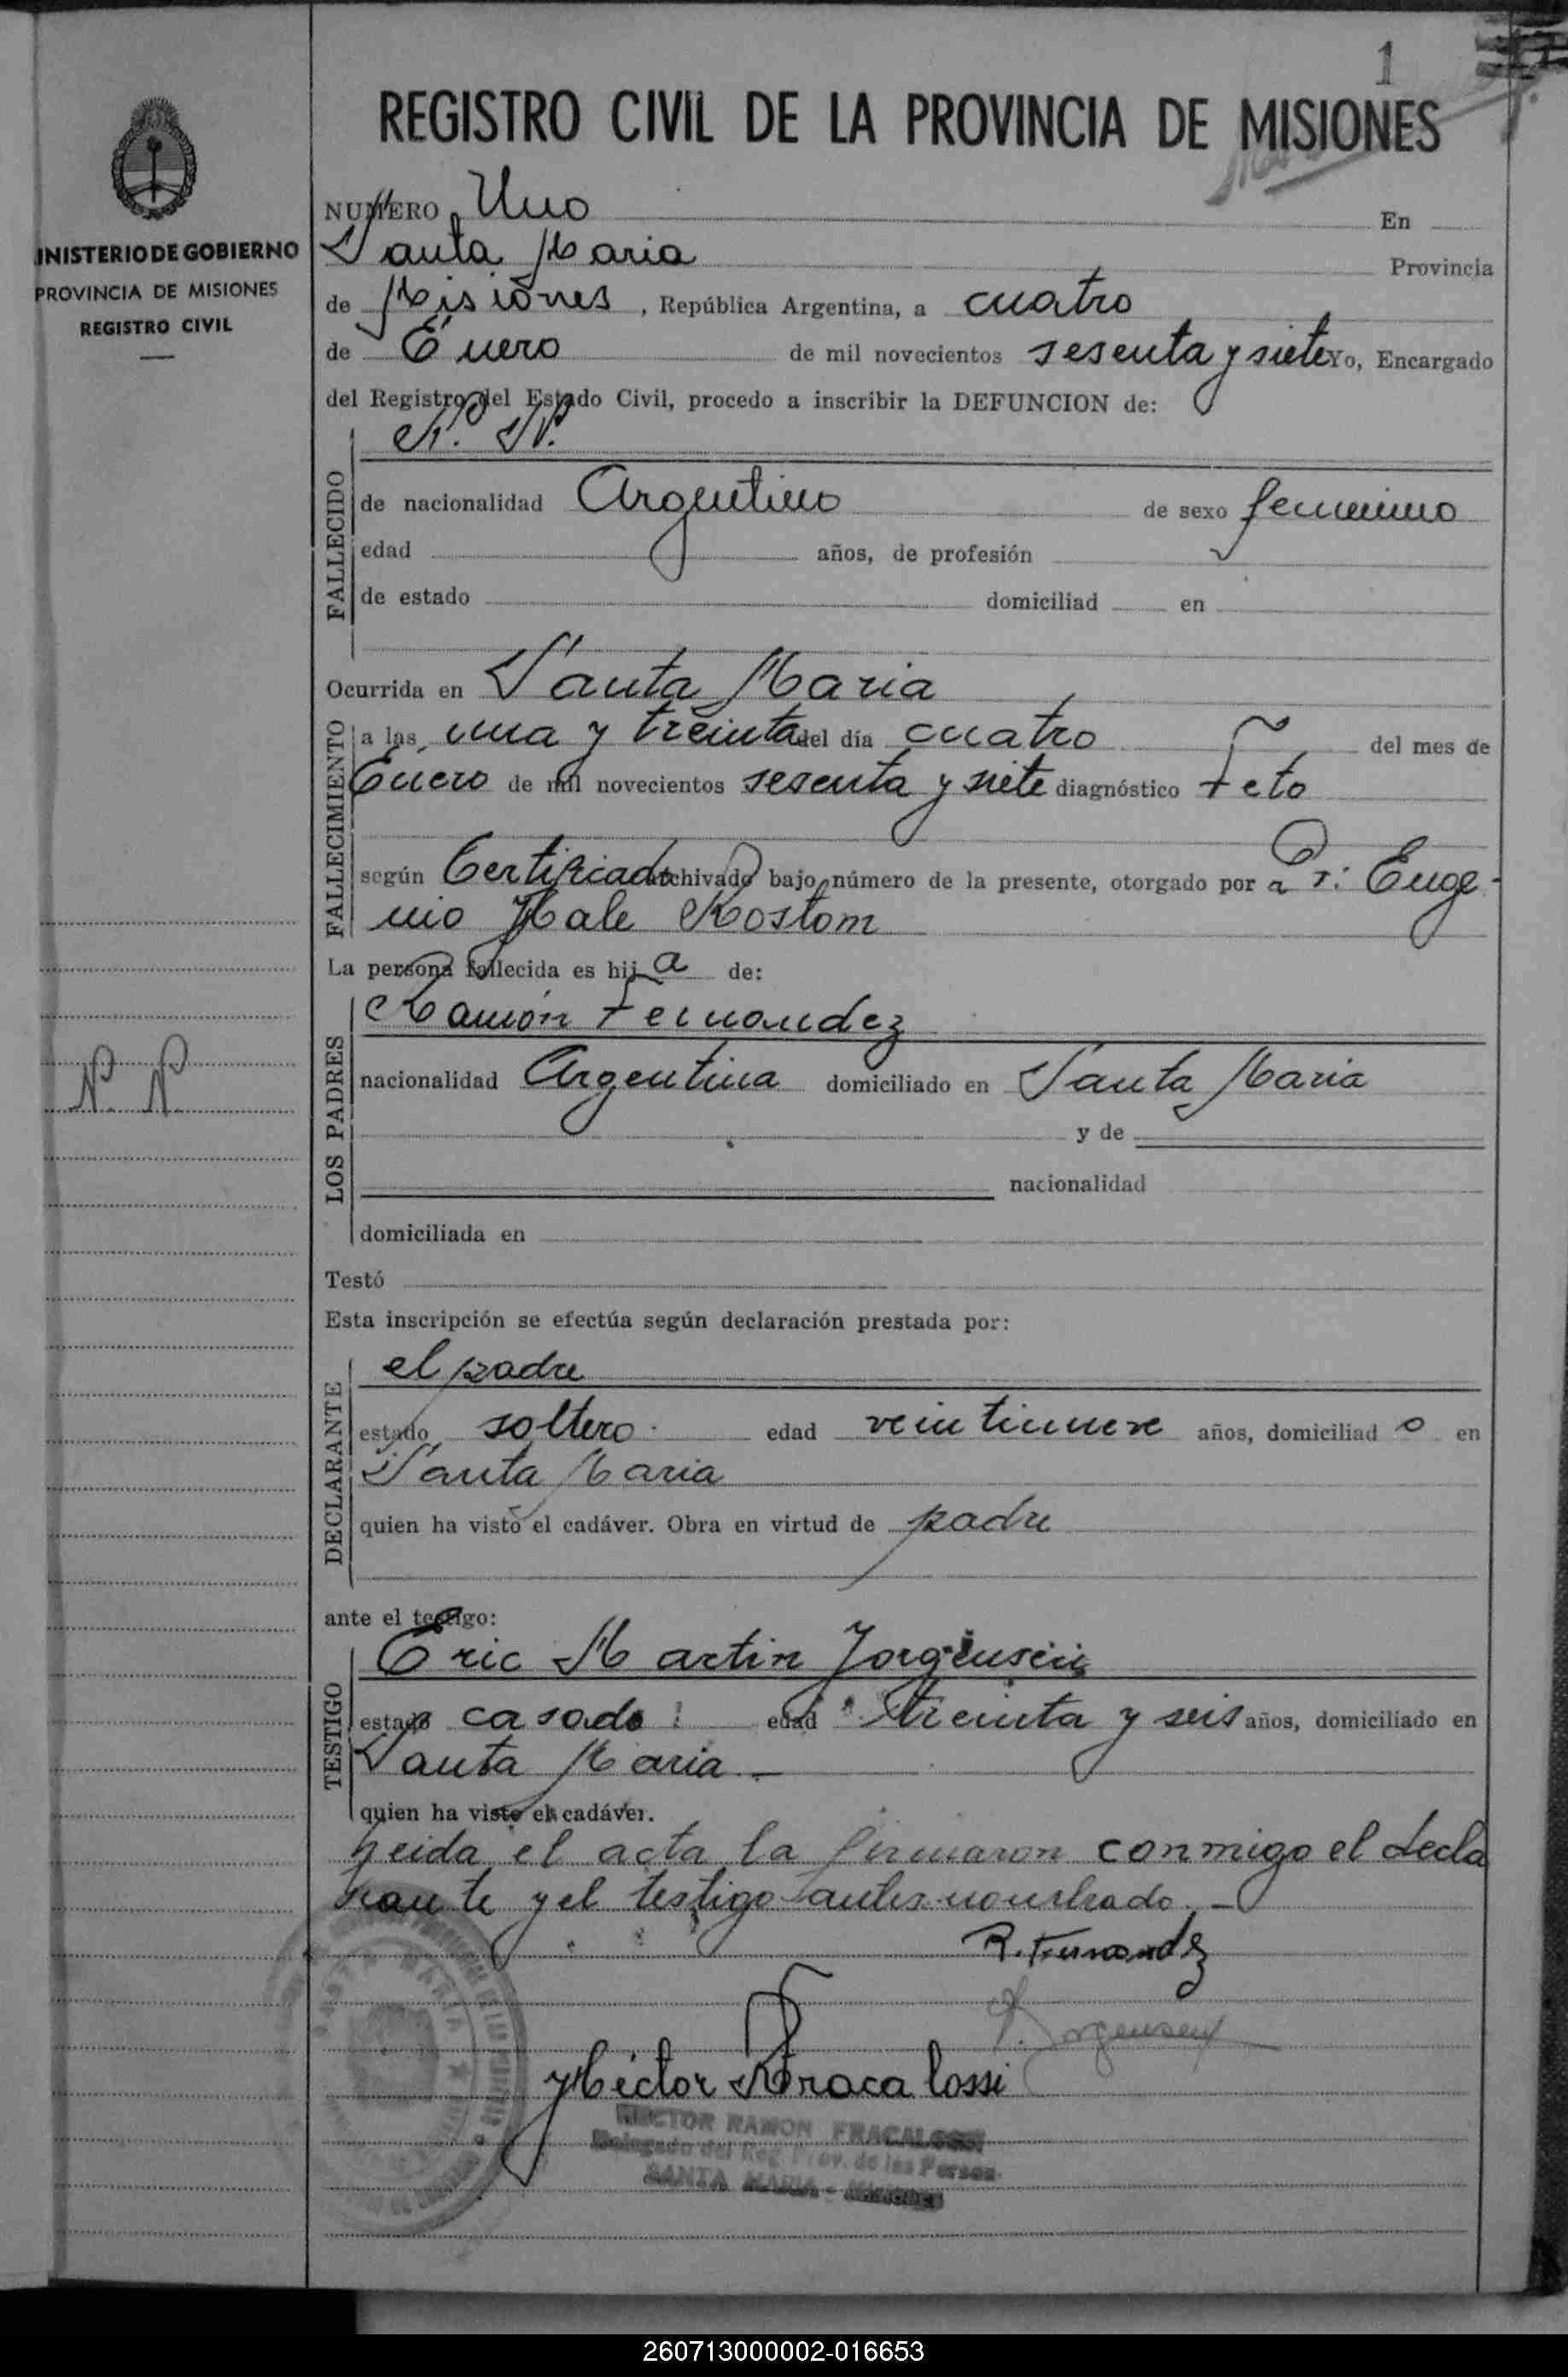 1
REGISTRO CIVIL DE LA PROVINCIA DE MISIONES
INISTERIO DE GOBIERNO
PROVINCIA DE MISIONES
REGISTRO CIVIL
NUMERO Uno En
Santa Maria Provincia
de Misiones, República Argentina, a cuatro
de Enero de mil novecientos sesenta y siete Yo, Encargado
del Registro del Estado Civil, procedo a inscribir la DEFUNCION de:
FALLECIDO
N. N.
de nacionalidad Argentino de sexo femenino
edad años, de profesión
de estado domiciliad en
Ocurrida en Santa Maria
FALLECIMIENTO
a las una y treinta del día cuatro del mes de
Enero de mil novecientos sesenta y siete diagnóstico Feto
según Certificado archivado bajo número de la presente, otorgado por Euge-
nio Kostom
La persona fallecida es hij a de:
LOS PADRES
Ramón Fernandez
nacionalidad Argentina domiciliado en Santa Maria
y de
nacionalidad
domiciliada en
N. N.
Testó
Esta inscripción se efectúa según declaración prestada por:
DECLARANTE
el padre
estado soltero edad veintinueve años, domiciliad o en
Santa Maria
quien ha visto el cadáver. Obra en virtud de padre
ante el testigo:
TESTIGO
Eric Martin Jorgensen
estado casado edad treinta y seis años, domiciliado en
Santa Maria
quien ha visto el cadáver.
Leida el acta la firmaron conmigo el decla
rante y el testigo antes nombrado. -
R. Fernandez
Jorgensen
Héctor R Fracalossi
HECTOR RAMON FRACALOSSI
Delegado del Reg. Prov. de las Person.
SANTA MARIA - MISIONES
260713000002-016653